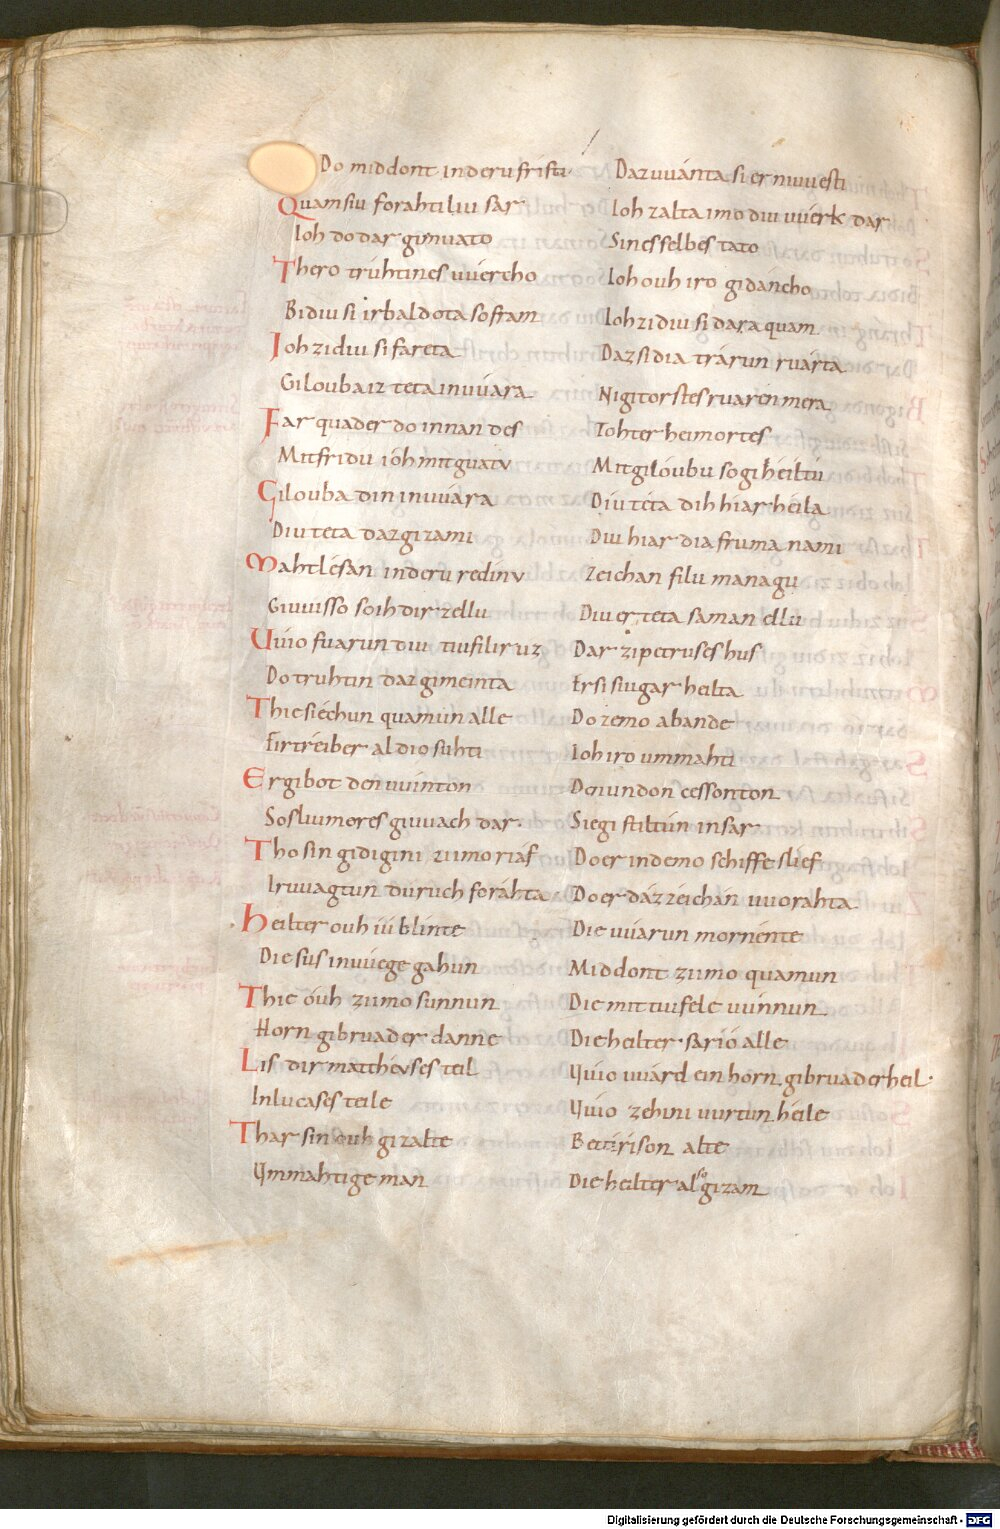 Do middont inderu fristi Daz uuánta si er nuuesti
Quam siu forahtiliu sar Ioh zalta imo diu uuerk dar
Ioh do dar gimuato Sines selbes tato
Thero trúhtines uuercho Ioh ouh iro gidáncho
Bidiu si irbaldota so fram Ioh zi diu si dara quam
Ioh zi diu si fareta Daz si dia trárun ruárta
Gilouba iz teta in uuára Nigitorstes ruaren mera
Far quad er do innan des Tohter heimortes
Mit fridu ióh mit guatu Mit gilóubu so giheiltu
Gilouba din in uuára Diu téta dih hiar heila
Diu teta daz gizami Diu hiar dia fruma nami
Maht lésan inderu redinu Zeichan filu managu
Giuuisso so ih dir zellu Diu er teta saman ellu
Uuio fuarun diu tiufilir uz Dar zi petruses hus
Do truhtin daz gimeinta Er si siugar heilta
Thie siechun quamun alle Do zemo abande
Firtréiber al dio suhti Ioh iro ummahti
Er gibot den uuinton Den undon cessonton
So sliumo res giuuach dar Sie gistiltún in sar
Tho sin gidigini zi imo riáf Do er in demo schiffe slief
Iruuagtun dúruch forahta Do er dáz zeichán uuorahta
Heilter ouh iii blinte Die uuárun mornénte
Die sus in uuege gahun Middont zi imo quamun
Thie óuh zi imo sunnun Die mit tiufele uunnun
Horn gibruader danne Die heilter sario alle
Lis dir mattheuses teil Uuio uuárd ein horn gibruader heil
In lucases teile Uuio zehini uurtun heile
Thar sin ouh gizalte Bettirison alte
Ummahtige man Die heilter al so gizam
Digitalisierung gefördert durch die Deutsche Forschungsgemeinschaft - DFG